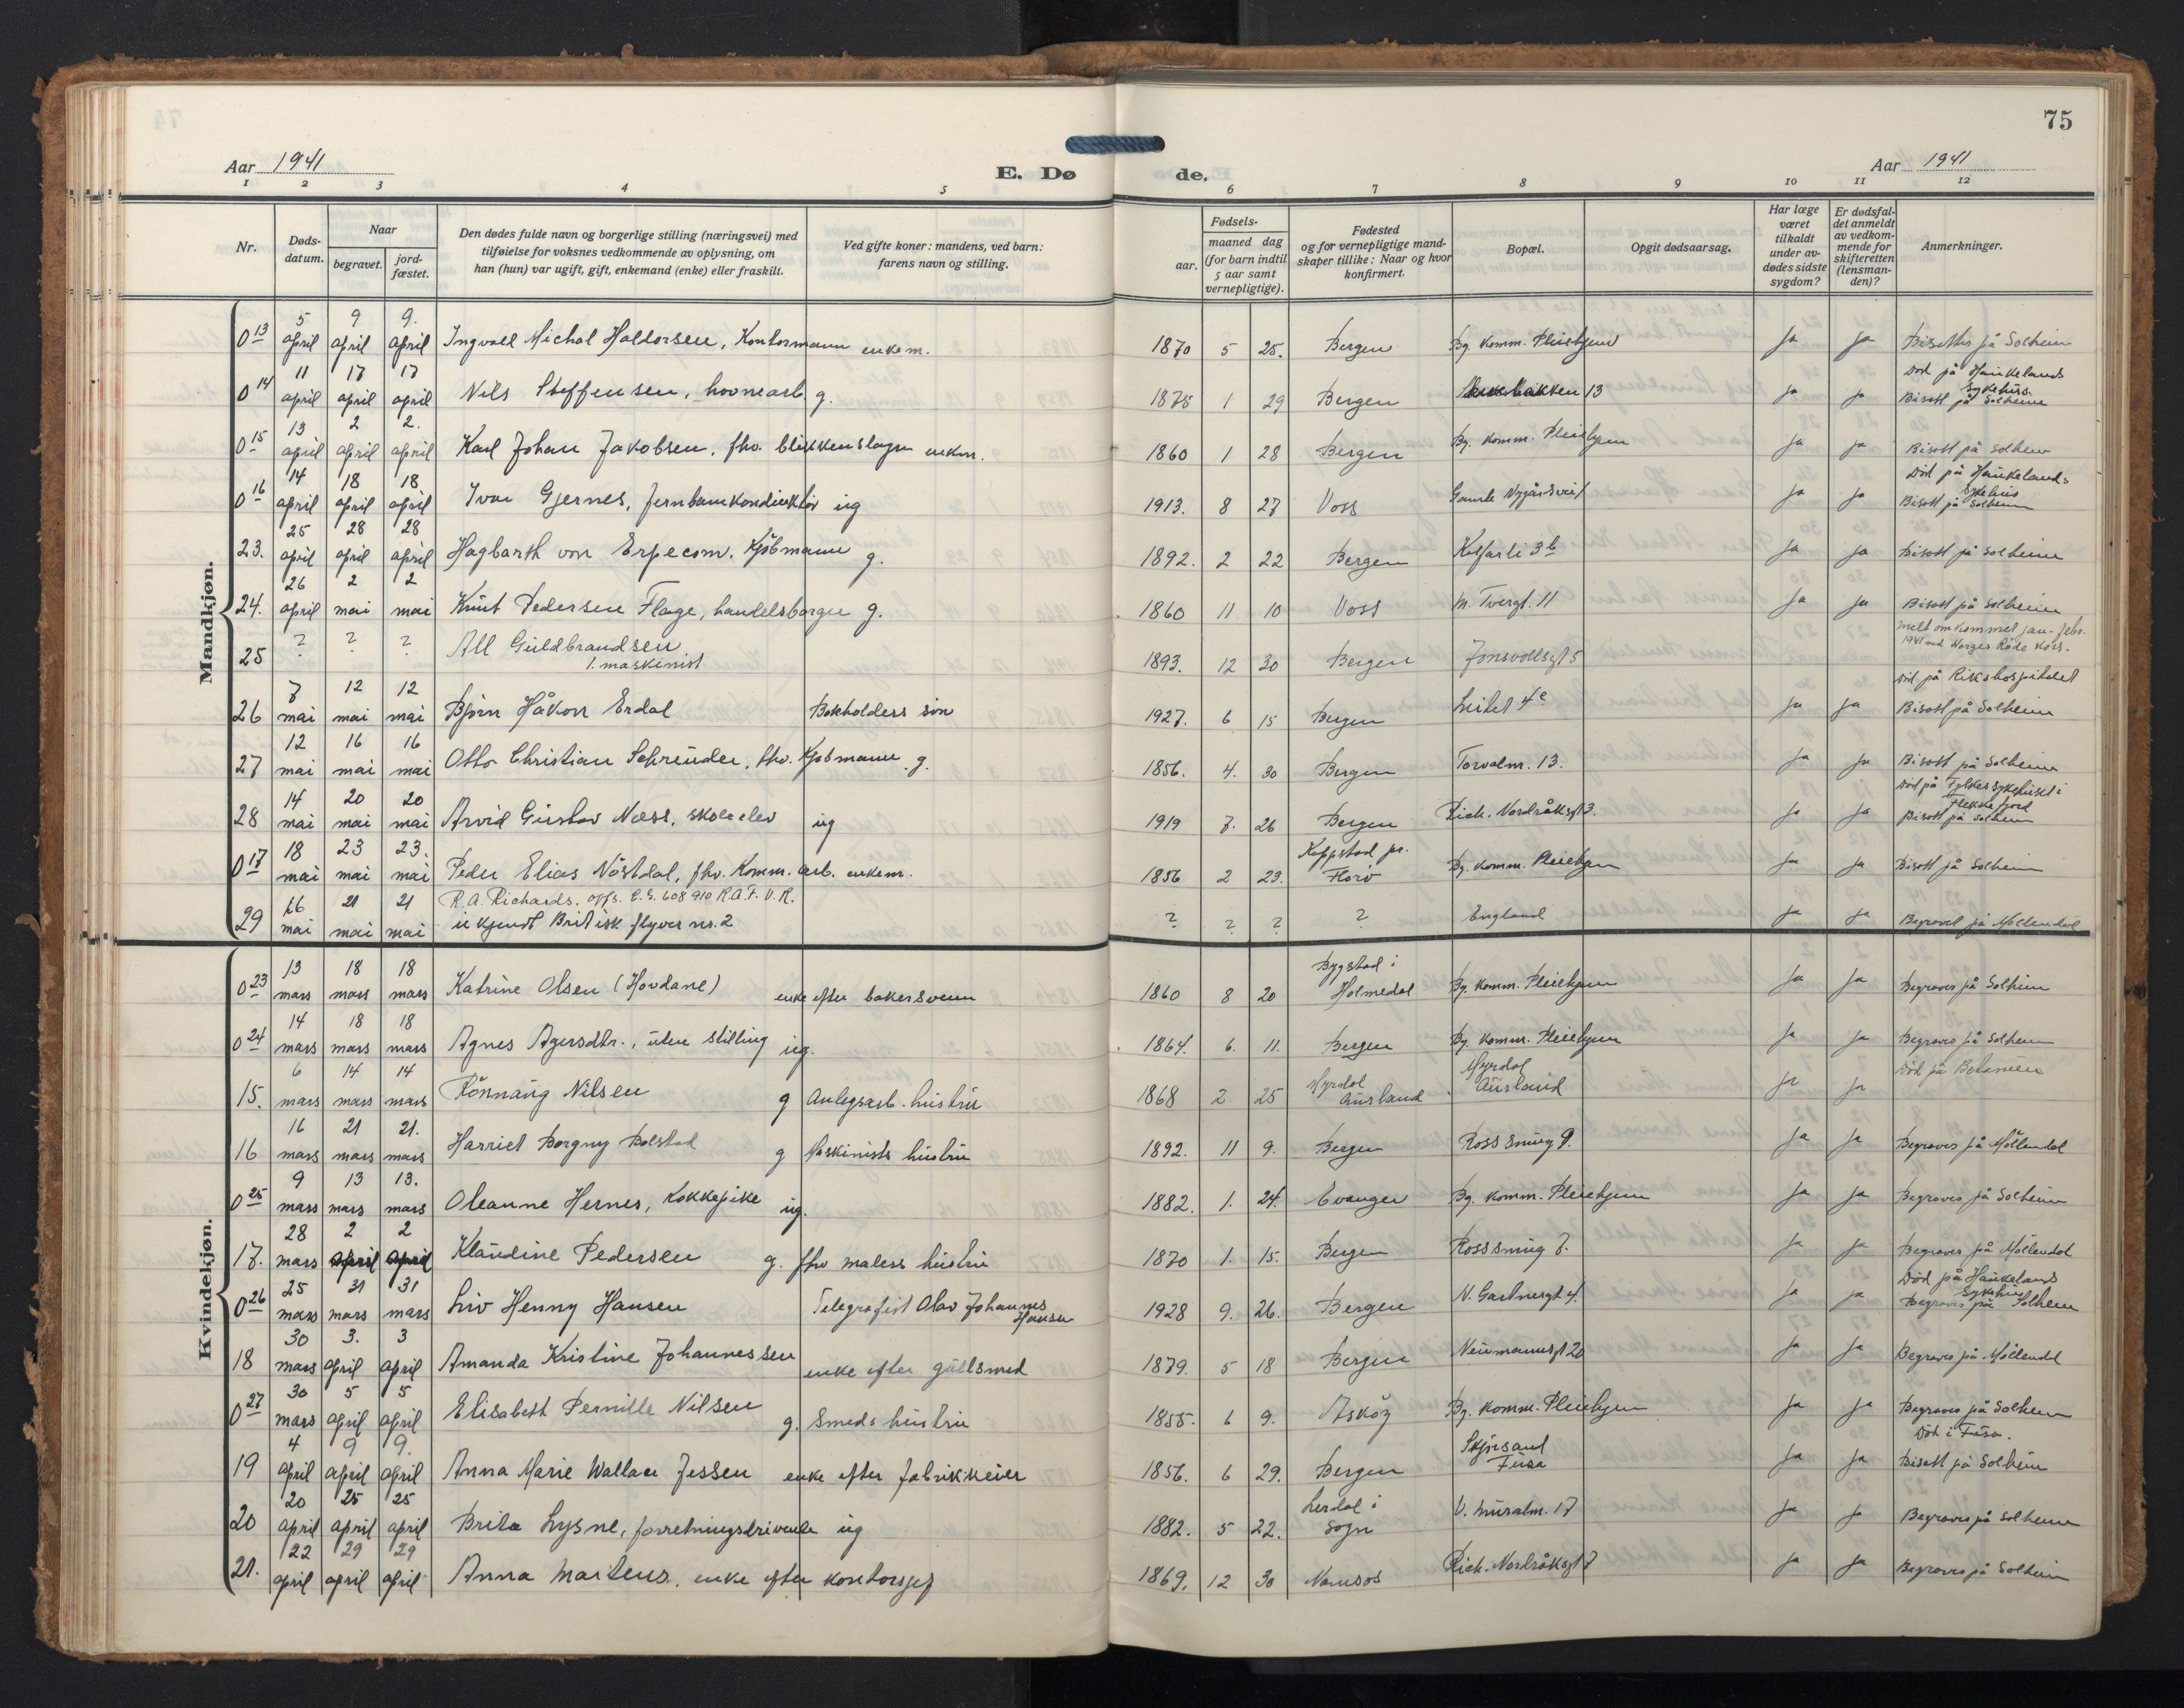 75
Aar 1941
E. Dø
de.
Aar 1941
1 2 3 4 5 6 7 8 9 10 11 12
Nr.
Døds-datum.
Naar
begravet.
jord-fæstet.
Den dødes fulde navn og borgerlige stilling (næringsvei) med
tilføielse for voksnes vedkommende av oplysning, om
han (hun) var ugift, gift, enkemand (enke) eller fraskilt.
Ved gifte koner: mandens, ved barn:
farens navn og stilling.
Fødsels-
aar.
maaned dag
(for barn indtil
5 aar samt
vernepligtige).
Fødested
og for vernepligtige mand-
skaper tillike: Naar og hvor
konfirmert.
Bopæl.
Opgit dødsaarsag.
Har læge
været
tilkaldt
under av-
dødes sidste
sygdom?
Er dødsfal-
det anmeldt
av vedkom-
mende for
skifteretten
(lensman-
den)?
Anmerkninger.
Mandkjøn.
0 13 5 april 9 april 9. april Ingvald Michal Haldorsen, Kontormann enkem. 1870 5 25. Bergen Bg. komm. Pleiehjem Ja Ja Bisettes på Solheim
0 14 11 april 17 april 17 april Nils Steffensen, havnearb. g. 1875 1 29 Bergen 13 Ja Ja Död på Haukelands Sykehus. Bisatt på Solheim
0 15 13 april 2 april 2. april Karl Johan Jakobsen, fhv. blikkenslager enkm. 1860 1 28 Bergen Bg. komm. Pleiehjem Ja Ja Bisatt på Solheim
0 16 14 april 18 april 18 april Ivar Gjernes, Jernbanekonduktör ug 1913. 8 27 Voss Gamle Nygårdsvei Ja Ja Död på Haukelands Sykehus Bisatt på Solheim
23. 25 april 28 april 28 april Hagbarth von Erpecom, Kjøbmann g. 1892. 2 22 Bergen Kalfarli 3b Ja Ja Bisatt på Solheim
24. 26 april 2 mai 2 mai Knut Pedersen Flage, handelsborger g. 1860 11 10 Voss M. Tvergt. 11 Ja Ja Bisatt på Solheim
25 ? ? ? Alf Guldbrandsen 1. maskinist 1893. 12 30 Bergen Jonsvollsgt 5 Melt omkommet jan-febr. 1941 ved Norges Röde Kors.
26 7 mai 12 mai 12 mai Björn Håkon Erdal Bokholders sön 1927. 6 15 Bergen Leitet 4e Ja Ja Död på Rikshospitalet Bisatt på Solheim
27 12 mai 16 mai 16 mai Otto Christian Schreuder, fhv. Kjøbmann g. 1856. 4. 30 Bergen Torvalm. 13. Ja Ja Bisatt på Solheim
28 14 mai 20 mai 20 mai Arvid Gustav Næss, skoleelev ug 1919 7. 26 Bergen Rich. Nordråksgt 3. Ja Ja Död på Fylkessykehuset i Flekkefjord Bisatt på Solheim
0 17 18 mai 23 mai 23. mai Peder Elias Nöstdal, fhv. Komm. arb. enkem. 1856 2 23. Keppstad pr. Florö Bg. komm. Pleiehjem Ja Ja Bisatt på Solheim
29 16 mai 21 mai 21 mai R.A. Richards. 608910 R.A.F. V.R. ukjendt Britisk flyver nr. 2 ? ? ? ? England Ja Ja Begravet på Möllendal
Kvindekjøn.
0 23 13 mars 18 mars 18 mars Katrine Olsen (Hovdane) enke efter bakersvenn 1860 8 20 Bygstad i Holmedal Bg. komm. Pleiehjem Ja Ja Begraves på Solheim
0 24 14 mars 18 mars 18 mars Agnes Agersdtr., uten stilling ug. 1864. 6. 11. Bergen Bg. komm. Pleiehjem Ja Ja Begraves på Solheim
15. 6 mars 14 mars 14 mars Rönnaug Nilsen g Anlegsarb. hustru 1868 2 25 Myrdal Aurland Myrdal Aurland Ja Ja Död på Betanien
16 16 mars 21 mars 21. mars Harriet Borgny Bolstad g Maskinists hustru 1892. 11 9. Bergen Rosssmug 9. Ja Ja Begraves på Möllendal
0 25 9 mars 13 mars 13. mars Oleanne Hernes, kokkepike ug. 1882. 1. 24. Evanger Bg. komm. Pleiehjem Ja Ja Begraves på Solheim
17. 28 mars 2 april 2 april Klaudine Pedersen g. fhv malers hustru 1870 1. 15. Bergen Rosssmug 7. Ja Ja Begraves på Möllendal
0 26 25 mars 31 mars 31 mars Liv Henny Hansen Telegrafist Olav Johannes Hansen 1928 9. 26. Bergen N. Gartnergt 4. Ja Ja Död på Haukelands Sykehus Begraves på Solheim
18 30 mars 3. april 3 april Amanda Kristine Johannessen enke efter gullsmed 1879. 5 18 Bergen Neumannsgt 20 Ja Ja Begraves på Möllendal
0 27 30 mars 5 april 5 april Elisabeth Pernille Nilsen g. Smeds hustru 1855. 6 9. Asköy Bg. komm. Pleiehjem Ja Ja Begraves på Solheim
19 4 april 9 april 9. april Anna Marie Wallace Jessen enke efter fabrikkeier 1856. 6 29. Bergen Skjörsand Fusa Ja Ja Död i Fusa. Bisatt på Solheim
20 20 april 25 april 25 april Brita Lysne, forretningsdrivende ug 1882. 5 22. Lerdal i Sogn V. muralm. 17 Ja Ja Begraves på Solheim
21. 22 april 29 april 29 april Anna Martens, enke efter kontorsjef 1869. 12 30 Namsos Rich. Nordråksgt 7 Ja Ja Begraves på Solheim